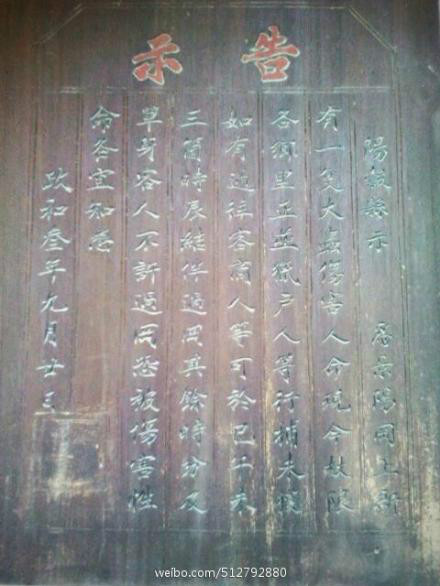 告示
陽穀縣示 為景陽岡上新
有一隻大蟲傷害人命現今杖限
各鄉里正並獵戶人等行捕未獲
如有過往客商人等可於巳午未
三箇時辰結伴過岡其餘時分及
單身客人不許過岡恐被傷害性
命各宜知悉
政和叁年九月廿三
weibo.com/512792880